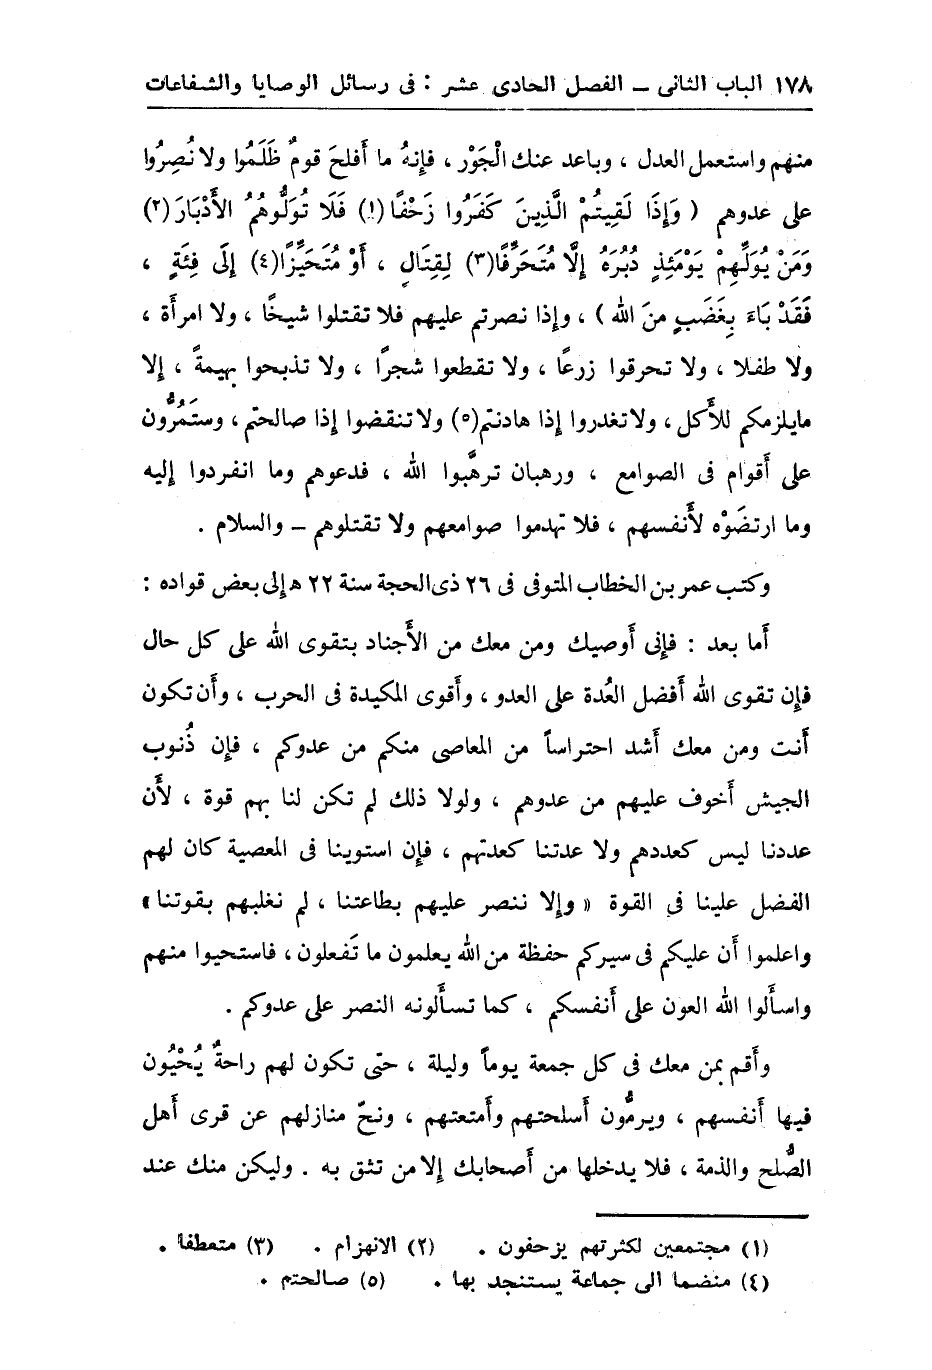 ١٧٨ الباب الثانى ــ الفصل الحادى عشر : فى رسائل الوصايا والشفاعات
منهم واستعمل العدل ، وباعد عنك الْجَوْر ، فإنهُ ما أَفلحَ قومٌ ظَلَمُوا ولا نُصِرُوا
على عدوهم ( وَإِذَا لَقِيتُمْ الَّذِينَ كَفَرُوا زَحْفًا(١) فَلَا تُوَلُّوهُمُ الأَدْبَارَ(٢)
وَمَنْ يُوَلِّهِمْ يَوْمَئِذٍ دُبُرَهُ إِلَّا مُتَحَرِّفًا(٣) لِقِتَالٍ ، أَوْ مُتَحَيِّزًا(٤) إِلَى فِئَةٍ ،
فَقَدْ بَاءَ بِغَضَبٍ منَ الله ) ، وإذا نصرتم عليهم فلا تقتلوا شيخًا ، ولا امرأة ،
ولا طفلا ، ولا تحرقوا زرعًا ، ولا تقطعوا شجرًا ، ولا تذبحوا بهيمةً ، إلا
مايلزمكم للأَكل ، ولاتغدروا إذا هادنتم(٥) ولاتنقضوا إذا صالحتم ، وستَمُرُّون
على أَقوام فى الصوامع ، ورهبان ترهَّبوا الله ، فدعوهم وما انفردوا إليه
وما ارتضَوْه لأَنفسهم ، فلا تهدموا صوامعهم ولا تقتلوهم ــ والسلام .
وكتب عمر بن الخطاب المتوفى فى ٢٦ ذى الحجة سنة ٢٢ هـ إلى بعض قواده :
أَما بعد : فإنى أُوصيك ومن معك من الأَجناد بتقوى الله على كل حال
فإن تقوى الله أَفضل العُدة على العدو ، وأَقوى المكيدة فى الحرب ، وأَن تكون
أَنت ومن معك أَشد احتراساً من المعاصى منكم من عدوكم ، فإن ذُنوب
الجيش أَخوف عليهم من عدوهم ، ولولا ذلك لم تكن لنا بهم قوة ، لأَن
عددنا ليس كعددهم ولا عدتنا كعدتهم ، فإن استوينا فى المعصية كان لهم
الفضل علينا فى القوة « وإلا ننصر عليهم بطاعتنا ، لم نغلبهم بقوتنا »
واعلموا أَن عليكم فى سيركم حفظة من الله يعلمون ما تَفعلون ، فاستحيوا منهم
واسأَلوا الله العون على أَنفسكم ، كما تسأَلونه النصر على عدوكم .
وأَقم بمن معك فى كل جمعة يوماً وليلة ، حتى تكون لهم راحةٌ يُحْيُون
فيها أَنفسهم ، ويرمُّون أَسلحتهم وأَمتعتهم ، ونحّ منازلهم عن قرى أَهل
الصُّلح والذمة ، فلا يدخلها من أَصحابك إلا من تثق به . وليكن منك عند
(١) مجتمعين لكثرتهم يزحفون . (٢) الانهزام . (٣) متعطفا .
(٤) منضما الى جماعة يستنجد بها . (٥) صالحتم .